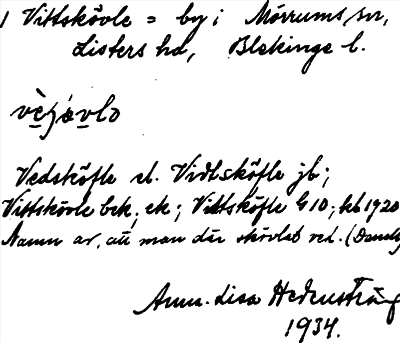 1 Vittskövle = by i Mörrums sn,
Listers hd, Blekinge l.
Vedsköfle el. Vidtsköfle jb;
Vittskövle bek, ek; Vittsköfle G 10; kb 1920
Namn av, att man där skövlat ved. (Dansk
Ann-Lisa Hedenstrøm
1934.